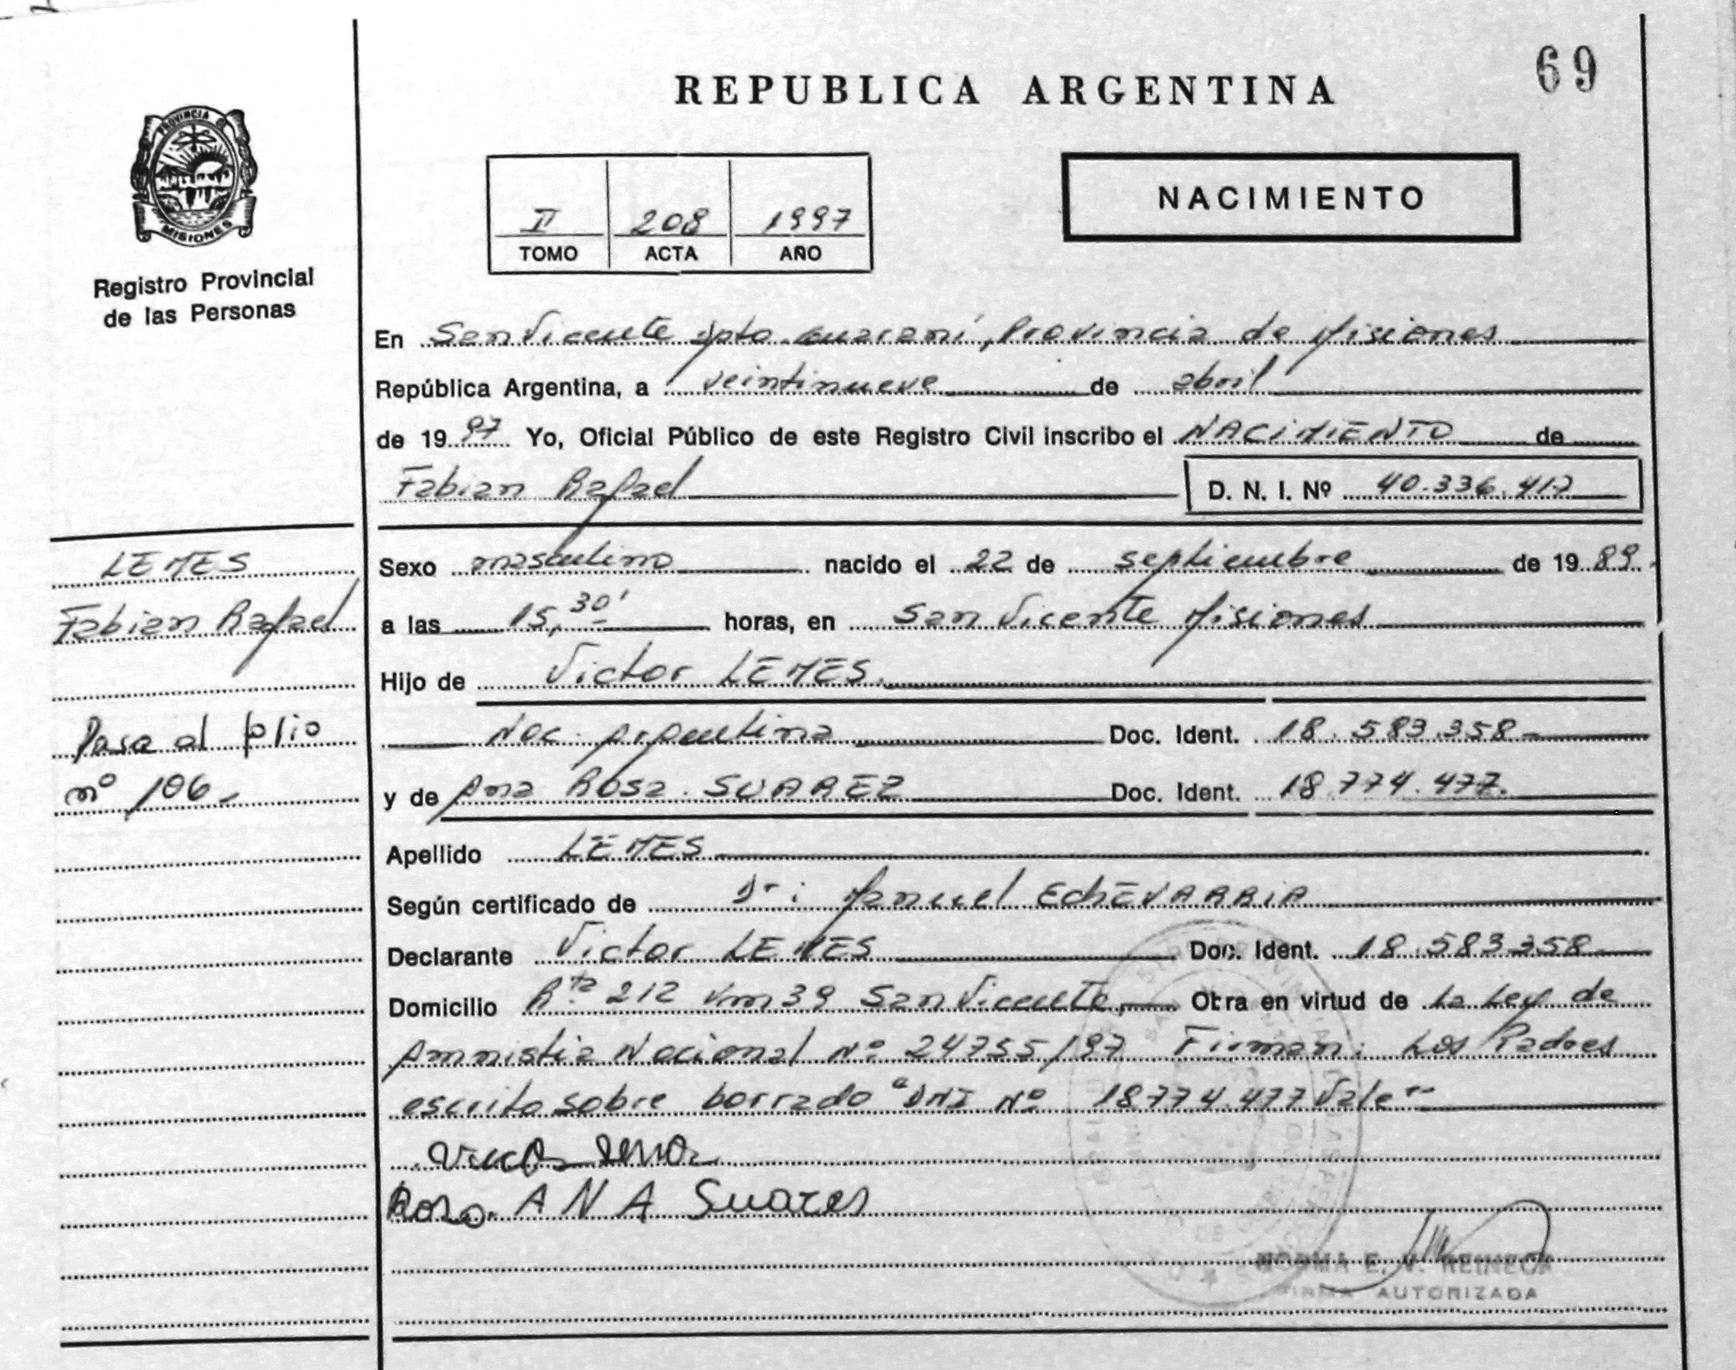 69
REPUBLICA ARGENTINA
PROVINCIA DE
MISIONES
Registro Provincial
de las Personas
II 208 1997
TOMO ACTA AÑO
NACIMIENTO
En San Vicente Dpto. Guaraní, Provincia de Misiones
República Argentina, a veintinueve de abril
de 1997 Yo, Oficial Público de este Registro Civil inscribo el NACIMIENTO de
Fabian Rafael D. N. I. Nº 40.336.417
LEMES
Fabian Rafael
Pasa al folio
nº 106-
Sexo masculino nacido el 22 de septiembre de 1989.
a las 15,30' horas, en San Vicente Misiones
Hijo de Victor LEMES.
Nac. Argentina Doc. Ident. 18.583.358-
y de Ana Rosa SUAREZ Doc. Ident. 18.774.477.
Apellido LEMES
Según certificado de Dr: Manuel EchEVARRIA
Declarante Victor LEMES Doc. Ident. 18.583.358
Domicilio Rta 212 Km 39 San Vicente, Obra en virtud de La Ley de
Amnistia Nacional Nº 24755/97 Firman: Los Padres
escrito sobre borrado "DNI Nº 18.774.477 Vale"
Roso. ANA Suares
NORMA E. V. REINECK
FIRMA AUTORIZADA